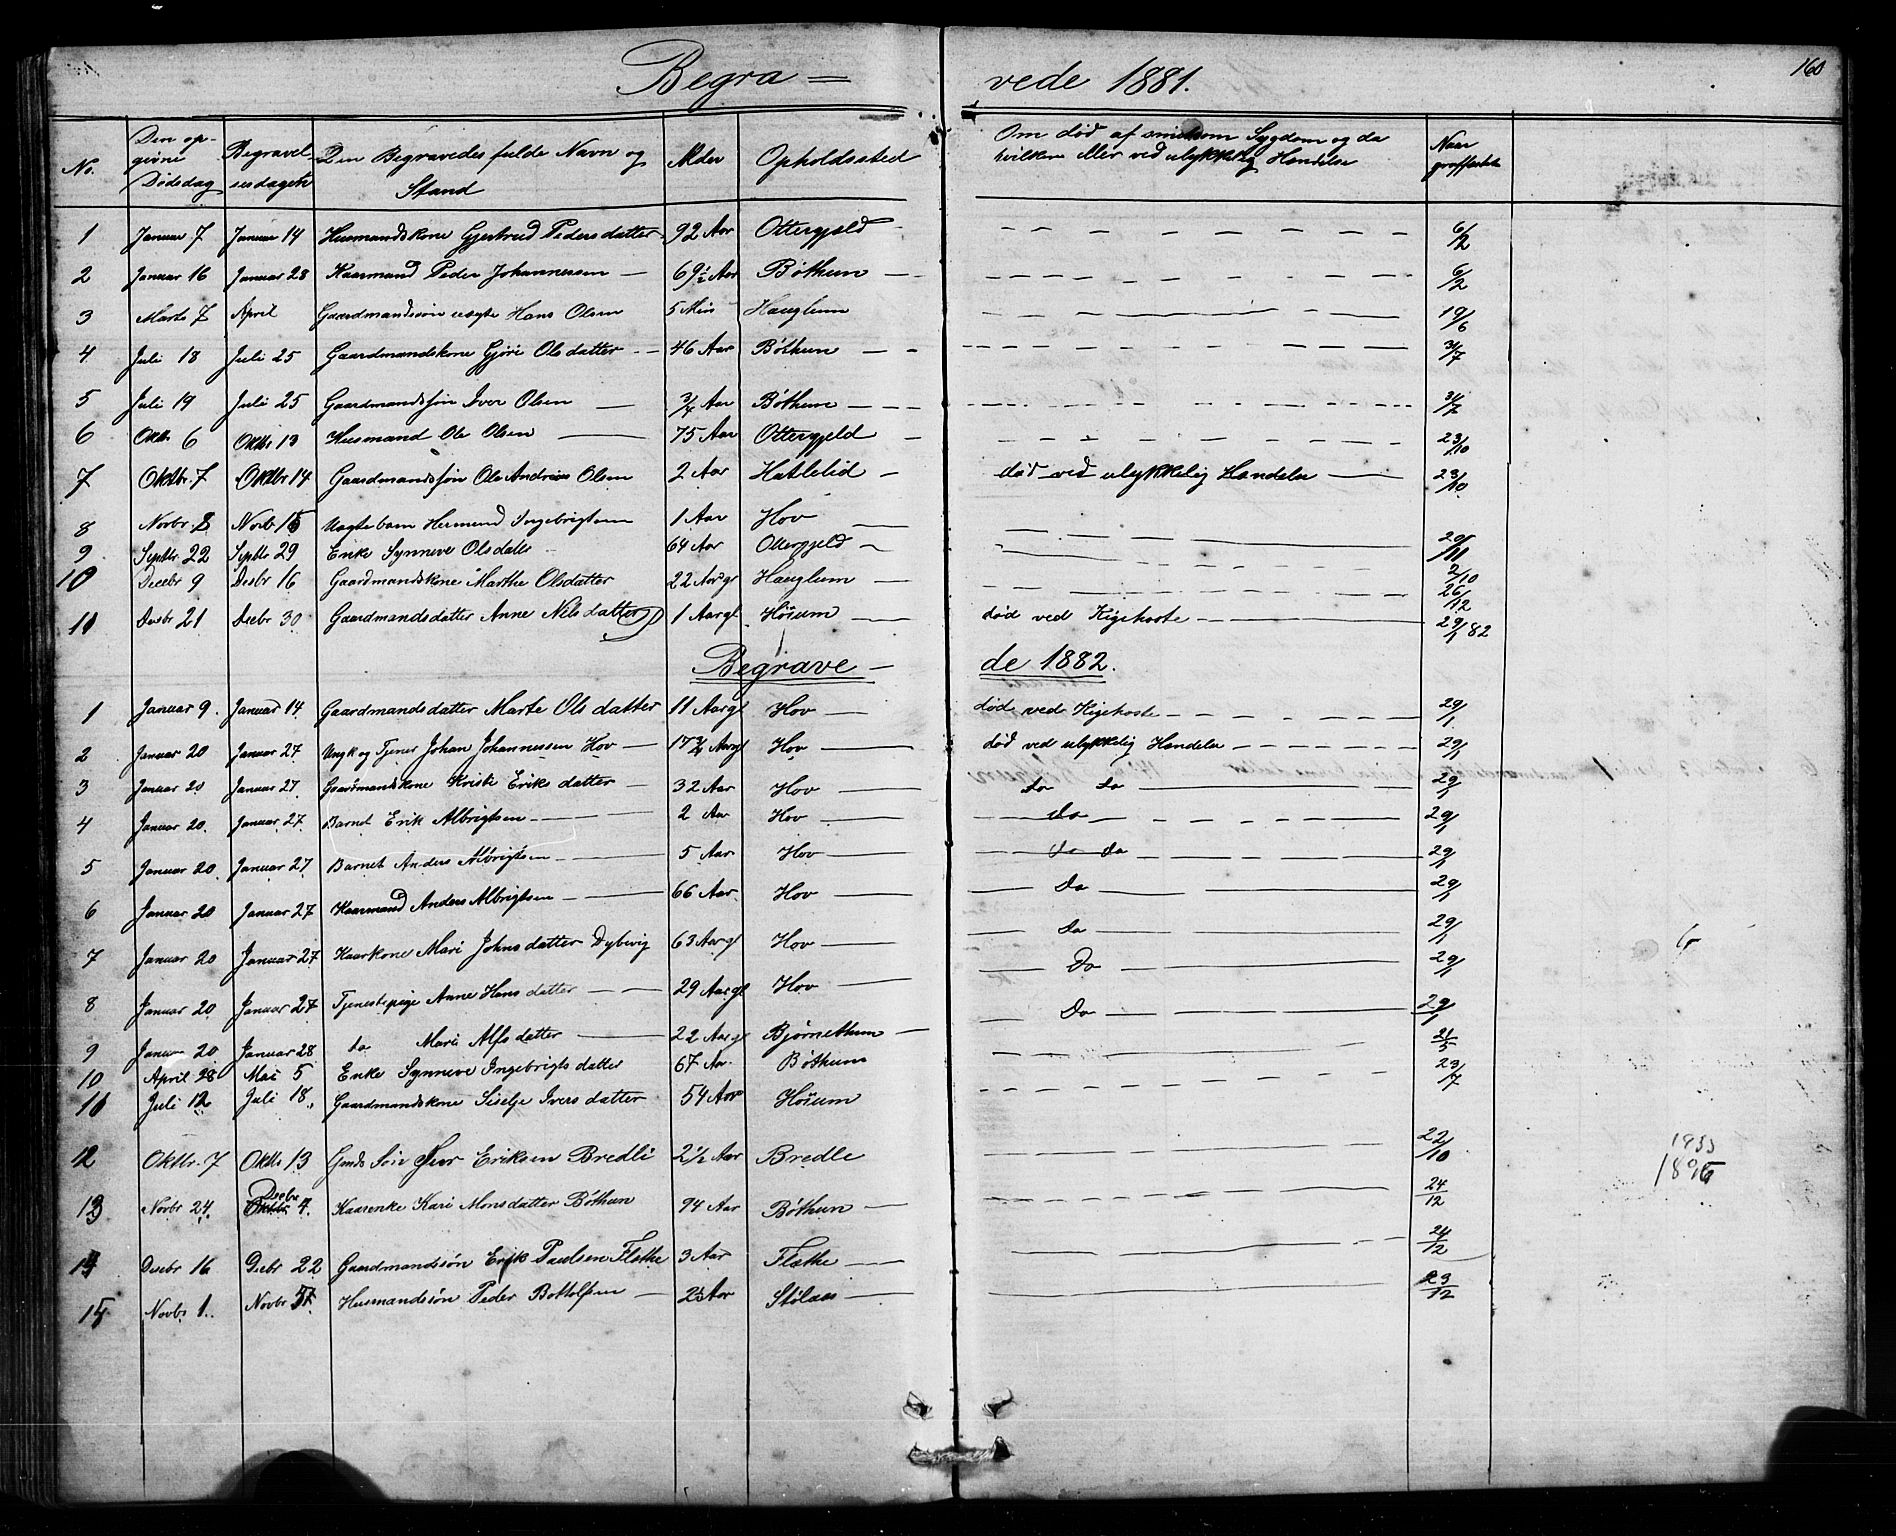 160
Begra = vede 1881.
No. Den op- givne Dødsdag Begravel- sesdagen Den Begravedes fulde Navn og Stand Alder Opholdssted Om død af smitsom Sygdom og da hvilken eller ved ulykkelig Hændelse Naar
1 Januar 7 Januar 14 Husmandskone Gjertrud Pedersdatter 92 Aar Ottergjeld 6/2
2 Januar 16 Januar 28 Kaarmand Peder Johannessen 69½ Aar Bøthun 6/2
3 Marts 7 April Gaardmandssøn uægte Hans Olsen 5 Min Hauglum 19/6
4 Juli 18 Juli 25 Gaardmandskone Gjøri Olsdatter 46 Aar Bøthun 31/7
5 Juli 19 Juli 25 Gaardmandssøn Iver Olsen 3/4 Aar Bøthun 31/7
6 Oktbr 6 Oktbr 13 Husmand Ole Olsen 75 Aar Ottergjeld 23/10
7 Oktbr. 7 Oktbr 14 Gaardmandssøn Ole Andreas Olsen 2 Aar Hatlelid død ved ulykkelig Hændelse 23/10
8 Novbr. 8 Novb 15 Uægtebarn Hermund Ingebrigtsen 1 Aar Hov 20/11
9 Septbr. 22 Septbr 29 Enke Synneve Olsdatter 64 Aar Ottergjeld 2/10
10 Decebr 9 Desbr 16 Gaardmandskone Marthe Olsdatter 22 Aar gl Hauglum 26/12
11 Desbr 21 Decbr 30 Gaardmandsdatter Anne Nilsdatter 1 Aar gl. Høium død ved Kighoste 29/1 82
Begrave - de 1882.
1 Januar 9. Januar 14. Gaardmandsdatter Marte Olsdatter 11 Aar gl Hov død ved Kighoste 29/1.
2 Januar 20 Januar 27. Ungk og Tjener Johan Johannessen Hov 17 3/4 Aar gl Hov død ved ulykkelig Hændelse 29/1
3 Januar 20 Januar 27. Gaardmandskone Kristi Eriksdatter 32 Aar Hov Do Do 29/1
4 Januar 20. Januar 27. Barnet Erik Albrigtsen 2 Aar Hov Do 29/1
5 Januar 20. Januar 27 Barnet Anders Albrigtsen 5 Aar Hov Do Do 29/1
6 Januar 20 Januar 27 Kaarmand Anders Albrigtsen 66 Aar. Hov Do 29/1
7 Januar 20 Januar 27 Kaarkone Mari Johnsdatter Dybevig 63 Aar gl Hov Do 29/1
8 Januar 20 Januar 27 Tjenestepige Anne Hansdatter 29 Aar gl Hov Do 29/1
9 Januar 20 Januar 28 do Mari Alfsdatter 22 Aar gl Bjørnethun Do 29/1
10 April 28 Mai 5 Enke Synneve Ingebrigtsdatter 67 Aar. Bøthum 21/5
11 Juli 12 Juli 18. Gaardmandskone Siselje Iversdatter 54 Aar Høium 23/7
12 Oktbr. 7 Oktbr 13 Gmds Søn Iver Eriksen Bredli 2½ Aar Bredle 22/10
13 Novbr 24. Oktbr Decbr 4. Kaarenke Kari Monsdatter Bøthun 94 Aar Bøthun 24/12
14 Desbr 16 Decbr 22 Gaardmandssøn Erik Paulsen Flathe 3 Aar Flathe 24/12
15 Novbr 1. Novbr Husmandssøn Peder Bottolfsen Aar Stølaas 23/12
1833